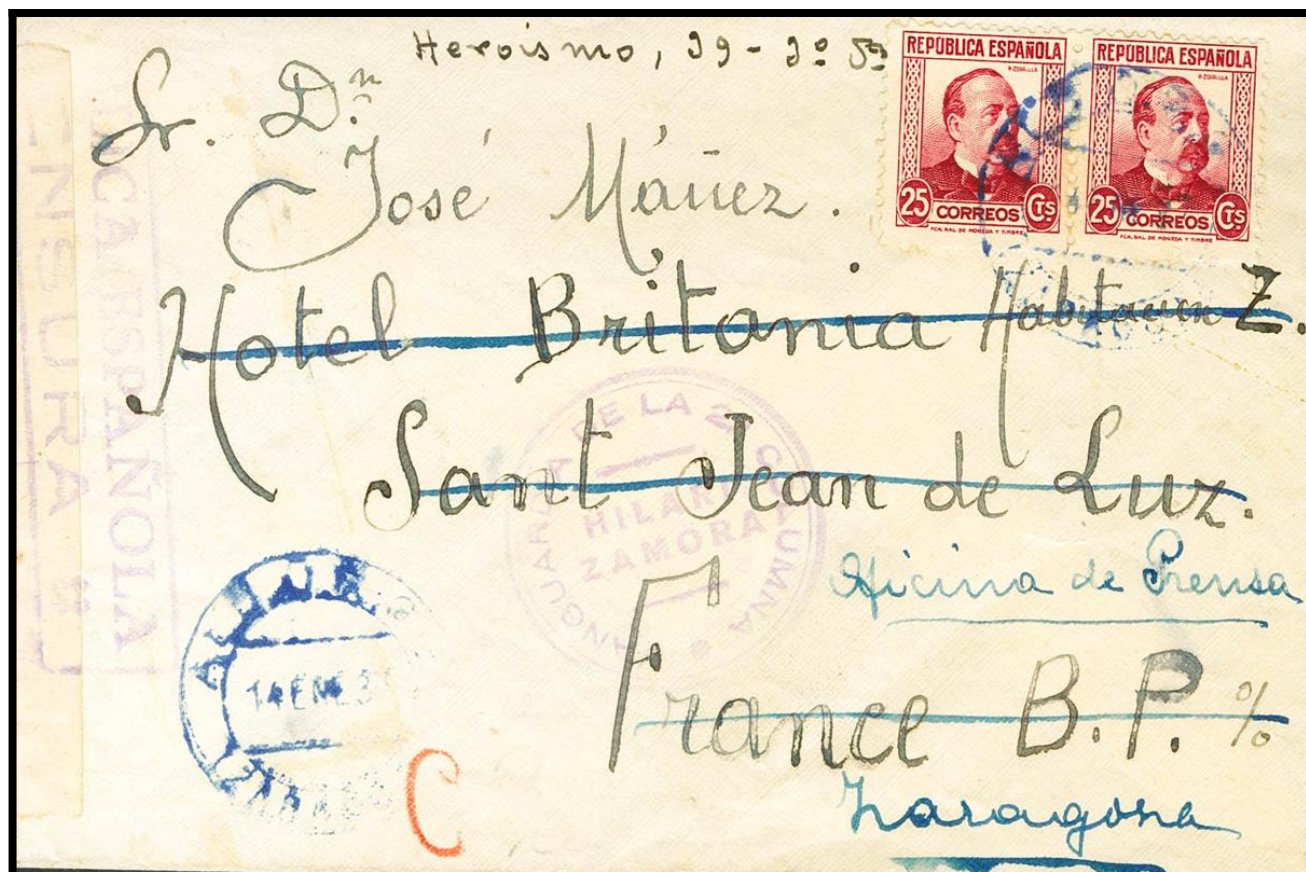 Heroísmo, 39 - 3º
REPÚBLICA ESPAÑOLA
25 CORREOS Cts
FCA. NAL. DE MONEDA Y TIMBRE
REPÚBLICA ESPAÑOLA
25 CORREOS Cts
FCA. NAL. DE MONEDA Y TIMBRE
Sr. Dn
José Máñez.
Hotel Britania Habitacion Z.
Sant Jean de Luz.
Oficina de Prensa
France B.P. %
Zaragoza
DE LA 2ª COLUMNA
HILARI
ZAMORA
14 ENE 3
C
ESPAÑOLA
CENSURA